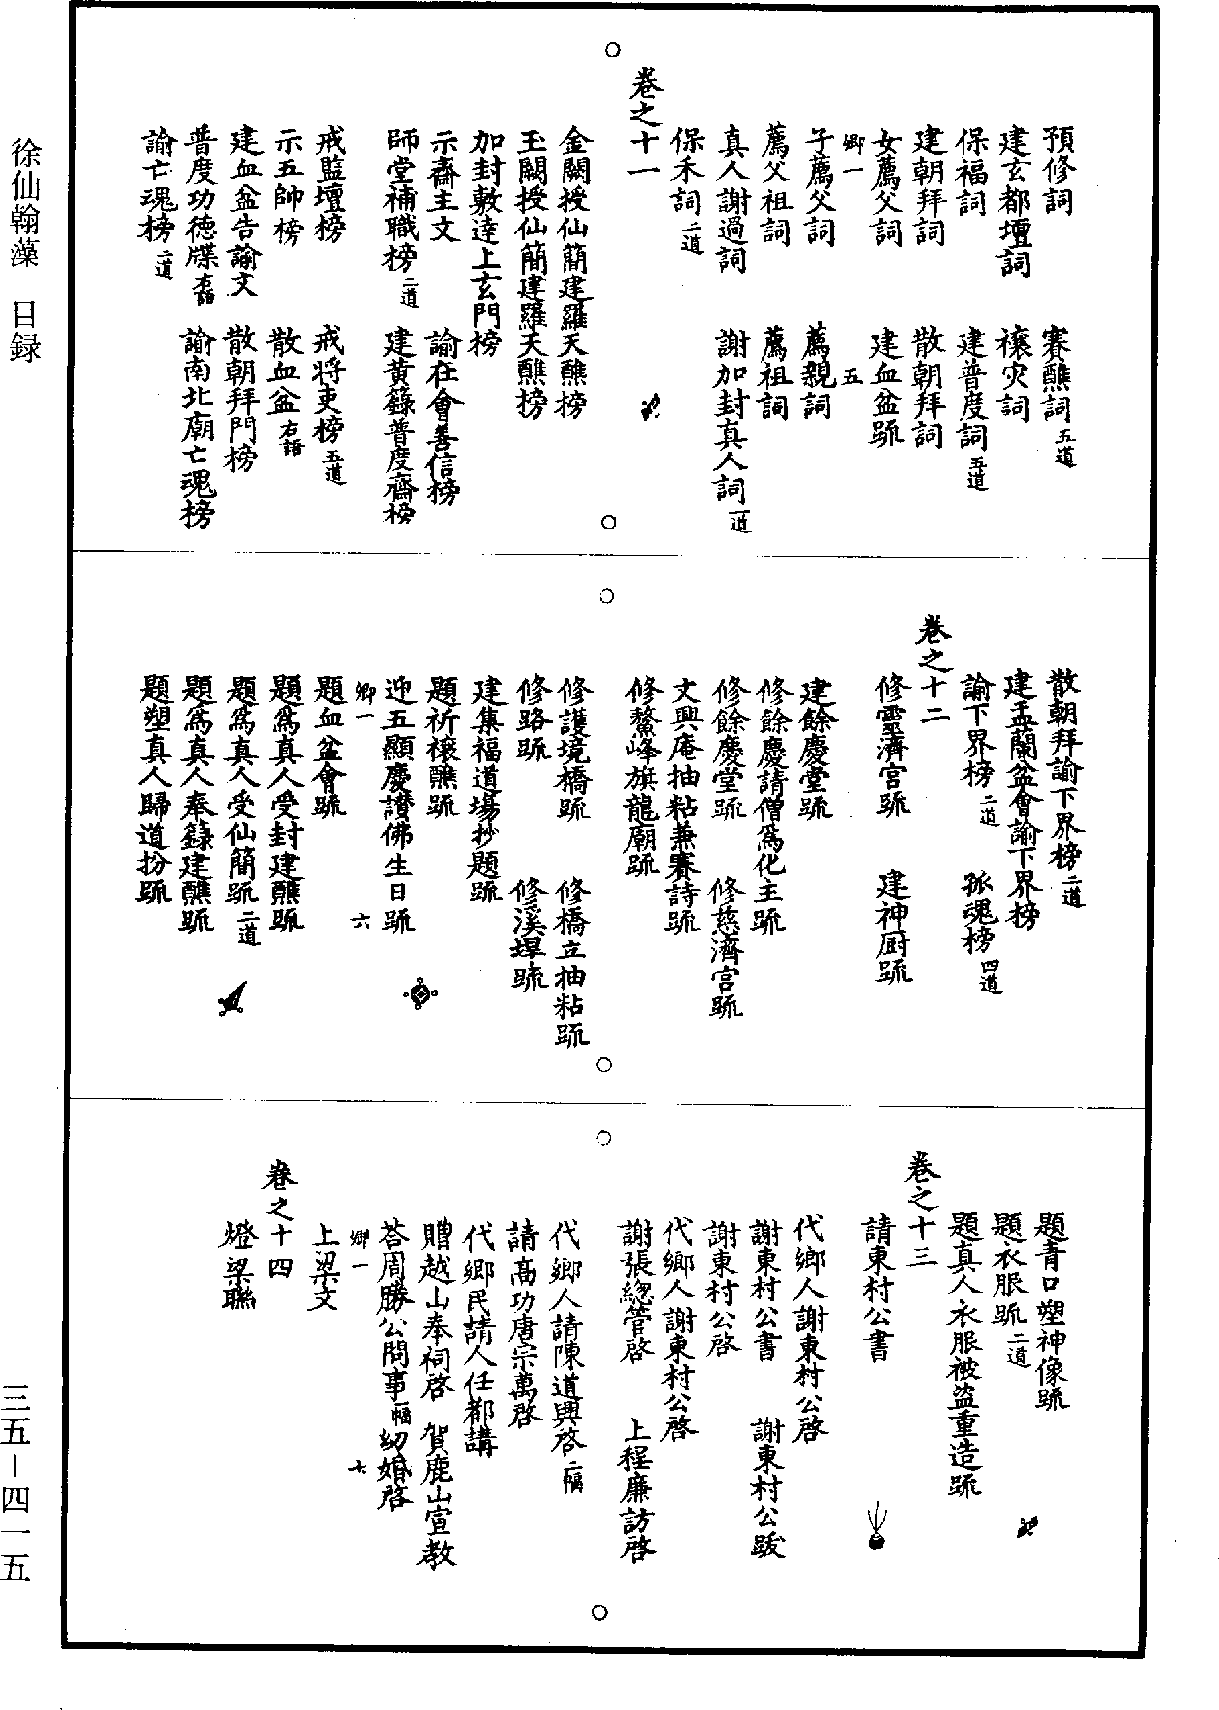 徐仙翰藻　目録
三五—四一五
預修詞　賽醮詞五道
建玄都壇詞　禳灾詞
保福詞　建普度詞五道
建朝拜詞　散朝拜詞
女薦父詞　建血盆䟽
卿一　五
子薦父詞　薦親詞
薦父祖詞　薦祖詞
真人謝過詞　謝加封真人詞一道
保禾詞二道
卷之十一
金闕授仙簡建羅天醮榜
玉闕授仙簡建羅天醮榜
加封敷逹上玄門榜
示齋主文　諭在會善信榜
師堂補職榜二道　建黄籙普度齋榜
戒監壇榜　戒將吏榜五道
示五帥榜　散血盆右語
建血盆告諭文　散朝拜門榜
普度功德牒右語　諭南北廟亡魂榜
諭亡魂榜二道
散朝拜諭下界榜二道
建盂蘭盆會諭下界榜
諭下界榜二道　孤魂榜四道
卷之十二
修靈濟宫䟽　建神厨䟽
建餘慶堂䟽
修餘慶請僧爲化主䟽
修餘慶堂䟽　修慈濟宫䟽
文興庵抽粘兼賽詩䟽
修鰲峰旗龍廟䟽
修護境橋䟽　修橋立抽粘䟽
修路䟽　修溪埕䟽
建集福道場抄題䟽
題祈禳醮䟽
迎五顯慶讃佛生日䟽
卿一　六
題血盆會䟽
題爲真人受封建醮䟽
題爲真人受仙簡䟽二道
題爲真人奉籙建醮䟽
題塑真人歸道扮䟽
題青口塑神像䟽
題衣服䟽二道
題真人衣服被盗重造䟽
卷之十三
請東村公書
代鄉人謝東村公啓
謝東村公書　謝東村公跋
謝東村公啓
代鄉人謝東村公啓
謝張總管啓　上程廉訪啓
代鄉人請陳道興啓二幅
請高功唐宗萬啓
代鄉民請人任都講
贈越山奉祠啓　賀鹿山宣教
荅周勝公問事一幅　紉婚啓
卿一　七
上梁文
卷之十四
燈梁聯